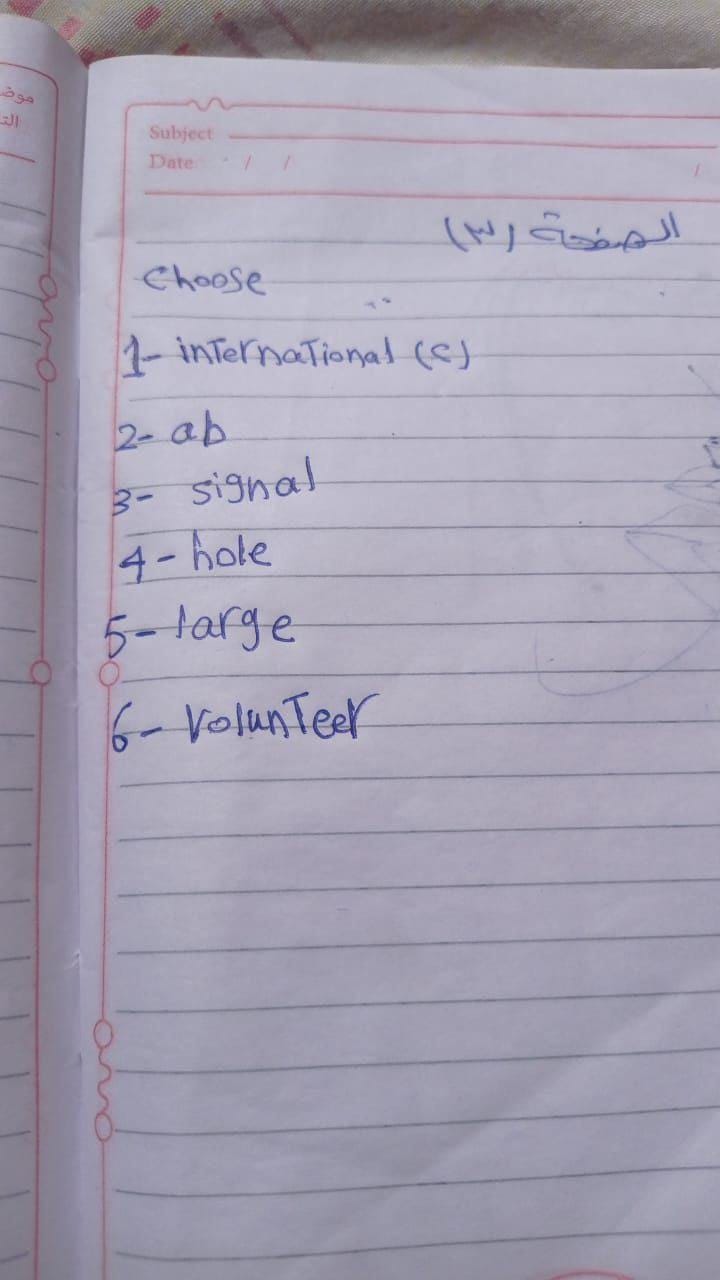 موض
الت
Subject
Date: / /
/
الصفحة (٣)
Choose
1- international (c)
2- ab
3- signal
4- hole
5- large
6- Volunteer